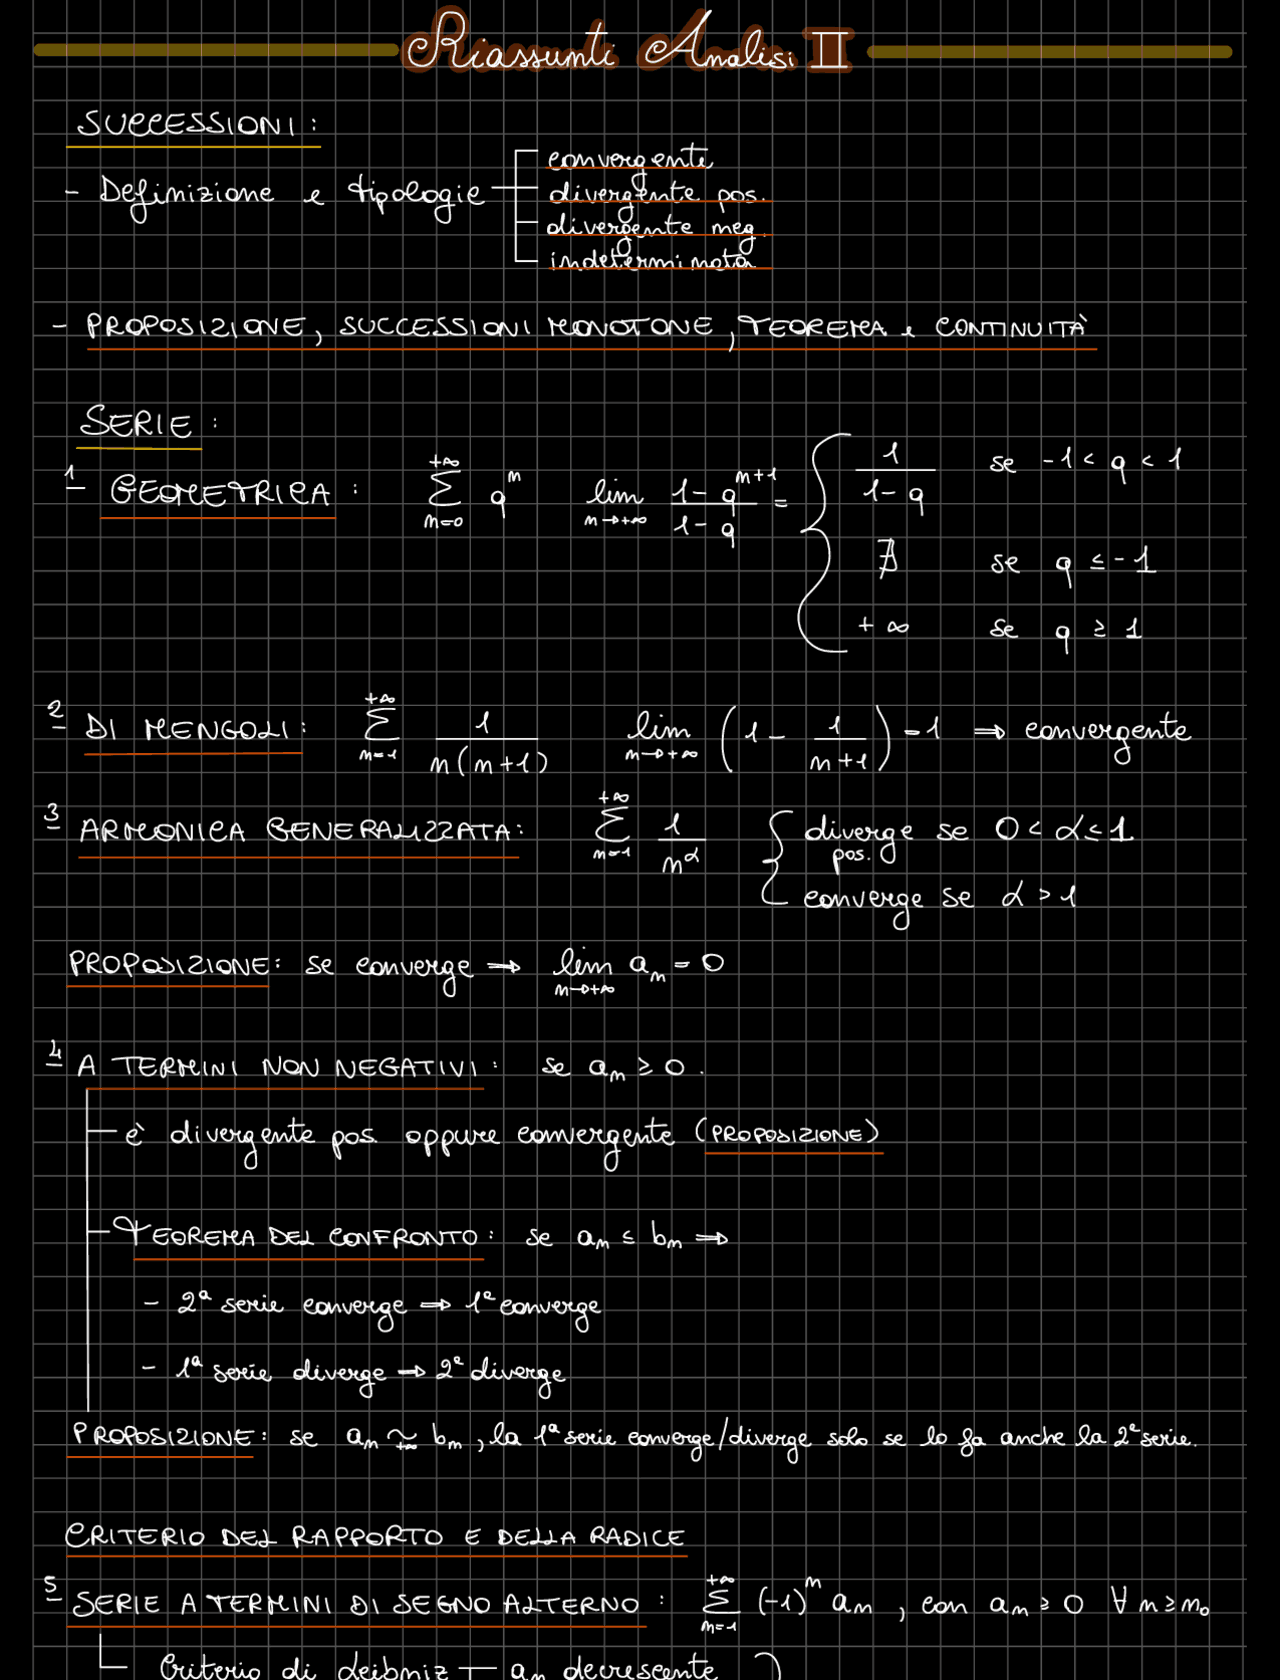 Riassunti Analisi II
SUCCESSIONI:
- Definizione e tipologie
convergente
divergente pos.
divergente neg.
indeterminata
- PROPOSIZIONE, SUCCESSIONI MONOTONE, TEOREMA e CONTINUITÀ
SERIE:
1 GEOMETRICA: \sum_{n=0}^{+∞} q^n lim_{n→+∞} \frac{1-q^{n+1}}{1-q} = { \frac{1}{1-q} se -1 < q < 1
∄ se q ≤ -1
+∞ se q ≥ 1
2 DI MENGOLI: \sum_{n=1}^{+∞} \frac{1}{n(n+1)} lim_{n→+∞} (1 - \frac{1}{n+1}) = 1 ⇒ convergente
3 ARMONICA GENERALIZZATA: \sum_{n=1}^{+∞} \frac{1}{n^α} { diverge pos. se 0 < α ≤ 1
converge se α > 1
PROPOSIZIONE: se converge ⇒ lim_{n→+∞} a_n = 0
4 A TERMINI NON NEGATIVI: se a_n ≥ 0.
è divergente pos. oppure convergente (PROPOSIZIONE)
TEOREMA DEL CONFRONTO: se a_n ≤ b_n ⇒
- 2ª serie converge ⇒ 1ª converge
- 1ª serie diverge ⇒ 2ª diverge
PROPOSIZIONE: se a_n \sim_{+∞} b_n, la 1ª serie converge/diverge solo se lo fa anche la 2ª serie.
CRITERIO DEL RAPPORTO E DELLA RADICE
5 SERIE A TERMINI DI SEGNO ALTERNO: \sum_{n=1}^{+∞} (-1)^n a_n, con a_n ≥ 0 ∀ n ≥ n_0
Criterio di Leibniz a_n decrescente }